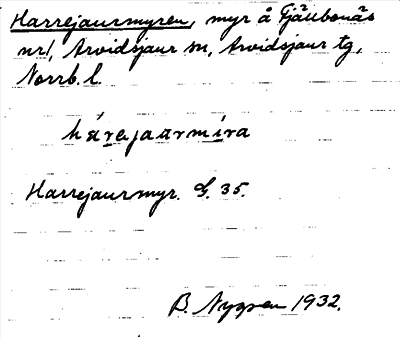 Harrejaurmyren, myr å Fjällbonäs
nr1, Arvidsjaur sn, Arvidsjaur tg,
Norrb. l.
hárejaarmíra
Harrejaurmyr. G. 35.
B. Nygren 1932.